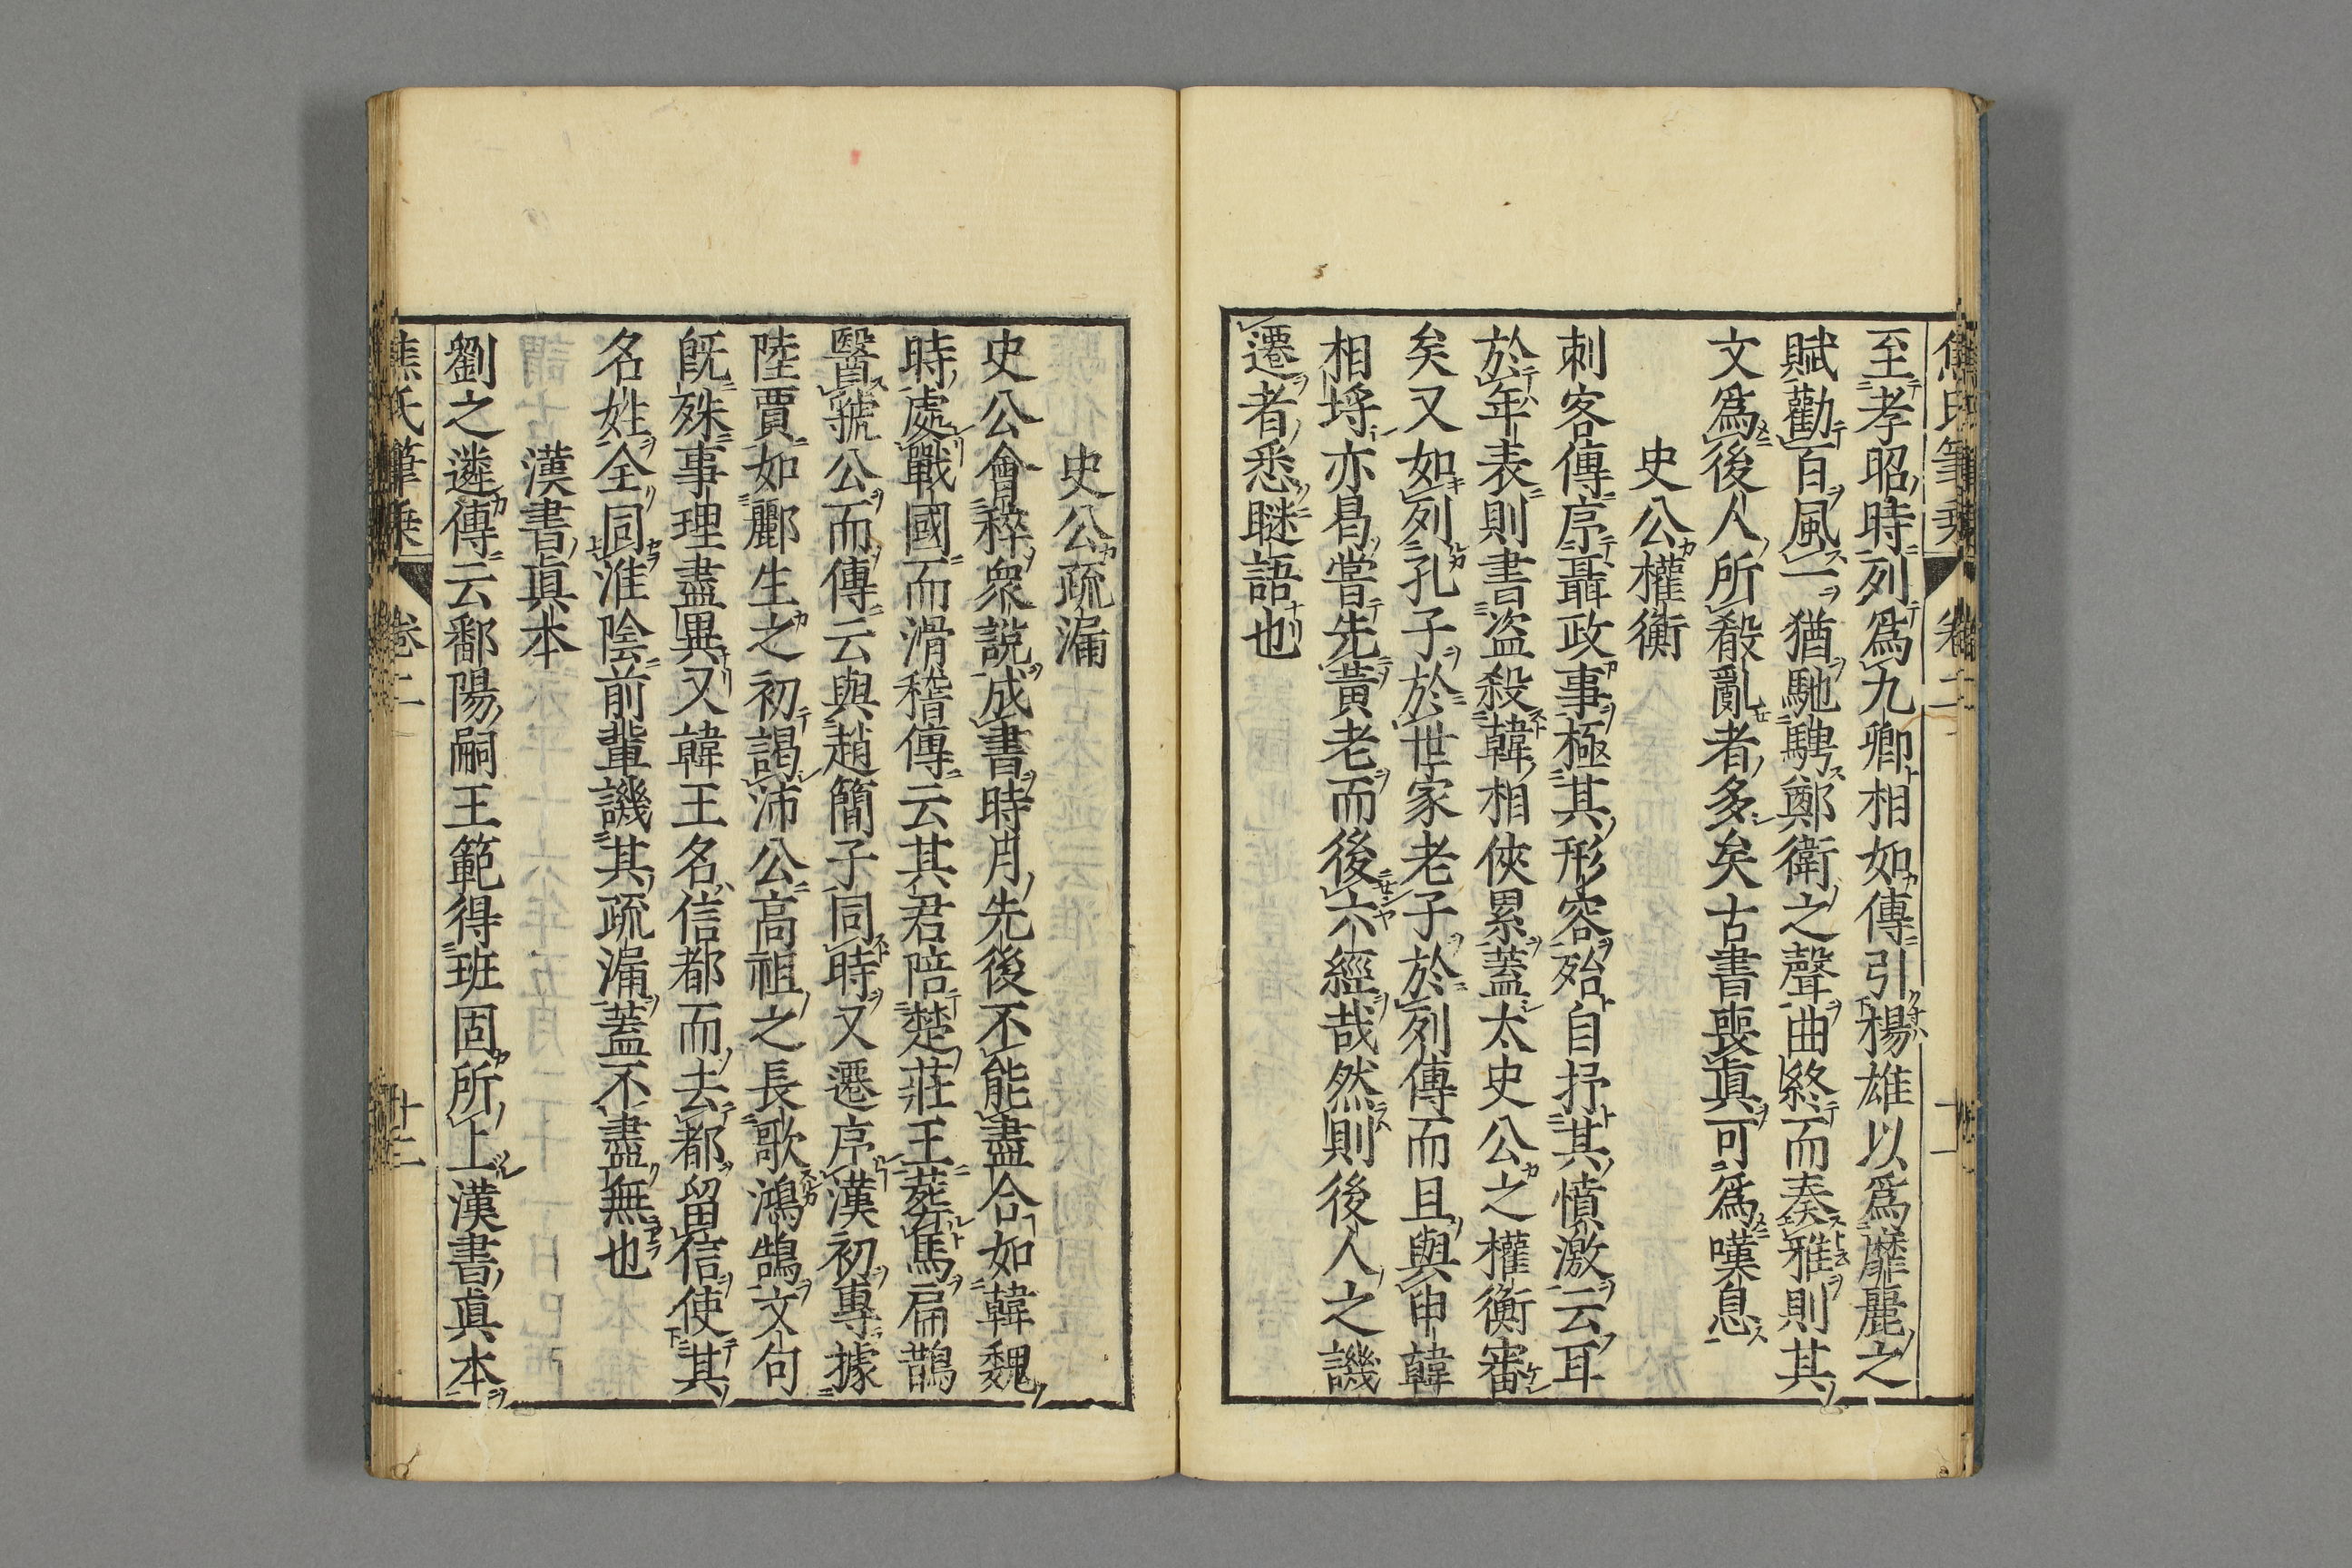 至孝昭時列爲九卿相如傳引楊雄以爲靡麗之
賦勸百風一猶馳騁鄭衛之聲曲終而奏雅則其
文爲後人所殽亂者多矣古書喪眞可爲嘆息
史公權衡
刺客傳序聶政事極其形容殆自抒其憤激云耳
於年表則書盜殺韓相俠累蓋太史公之權衡審
矣又如列孔子於世家老子於列傳而且與申韓
相埒亦曷嘗先黃老而後六經哉然則後人之譏
遷者悉瞇語也
史公疏漏
史公會稡衆說成書時月先後不能盡合如韓魏
時處戰國而滑稽傳云其君陪楚莊王葬馬扁鵲
醫虢公而傳云與趙簡子同時又遷序漢初專據
陸賈如酈生之初謁沛公高祖之長歌鴻鵠文句
旣殊事理盡異又韓王名信都而去都留信使其
名姓全同淮陰前輩譏其疏漏蓋不盡無也
漢書眞本
劉之遴傳云鄱陽嗣王範得班固所上漢書眞本
焦氏筆乗
卷二
十二